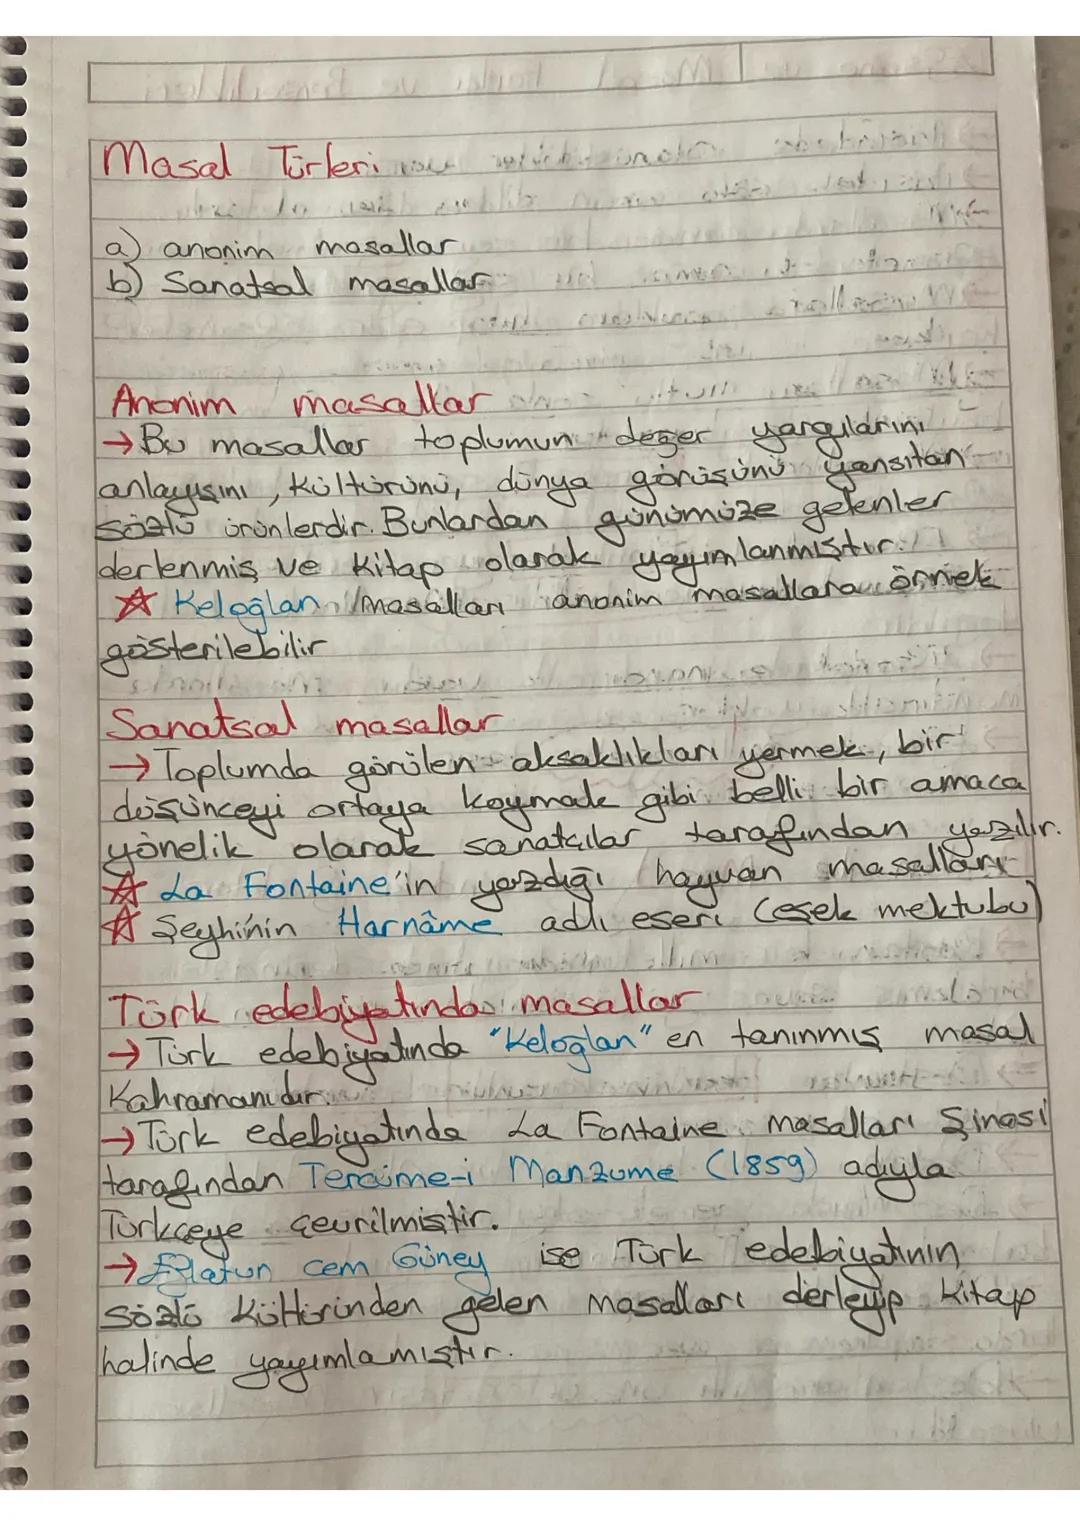 Masal Türleri
a) anonim masallar
b) Sanatsal masallar
Anonim masallar
→ Bu masallar toplumun değer yargılarını
anlayışını, kültürünü, dünya görüşünü yansıtan
sözlü ürünlerdir. Bunlardan günümüze gelenler
derlenmiş ve kitap olarak yayımlanmıştır.
☆ Keloğlan masalları anonim masallara örnek
gösterilebilir
Sanatsal masallar
→ Toplumda görülen aksaklıkları yermek, bir
düşünceyi ortaya koymak gibi belli bir amaca
yönelik olarak sanatçılar tarafından yazılır.
☆ La Fontaine'in yazdığı hayvan masalları
☆ Şeyhi'nin Harnâme adlı eseri (eşek mektubu)
Türk edebiyatında masallar
→ Türk edebiyatında "Keloğlan" en tanınmış masal
Kahramanıdır.
→ Türk edebiyatında La Fontaine masalları Şinasi
tarafından Tercüme-i Manzume (1859) adıyla
Türkçeye çevrilmiştir.
→ Eflatun cem Güney ise Türk edebiyatının
sözlü kültüründen gelen masalları derleyip kitap
halinde yayımlamıştır.